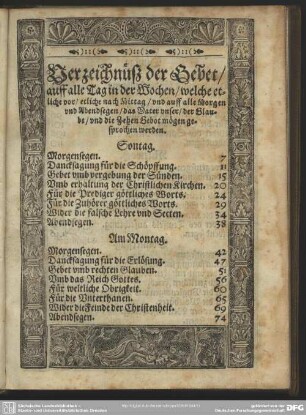 Verzeichnüß der Gebet/
auff alle Tag in der Wochen/ welche et-
liche vor/ etliche nach Mittag/ vnd auff alle Morgen
vnd Abendsegen/ das Vater vnser/ der Glau-
be/ vnd die Zehen Gebot mögen ge-
sprochen werden.
Sontag.
Morgensegen. 7
Dancksagung für die Schöpffung. 11
Gebet vmb vergebung der Sünden. 15
Vmb erhaltung der Christlichen Kirchen. 20
Für die Prediger göttliches Worts. 24
Für die Zuhörer göttliches Worts. 29
Wider die falsche Lehre vnd Secten. 34
Abendsegen. 38
Am Montag.
Morgensegen. 42
Dancksagung für die Erlösung. 47
Gebet vmb rechten Glauben. 51
Vmb das Reich Gottes. 56
Für weltliche Obrigkeit. 60
Für die Vnterthanen. 65
Wider die Feinde der Christenheit. 69
Abendsegen. 74